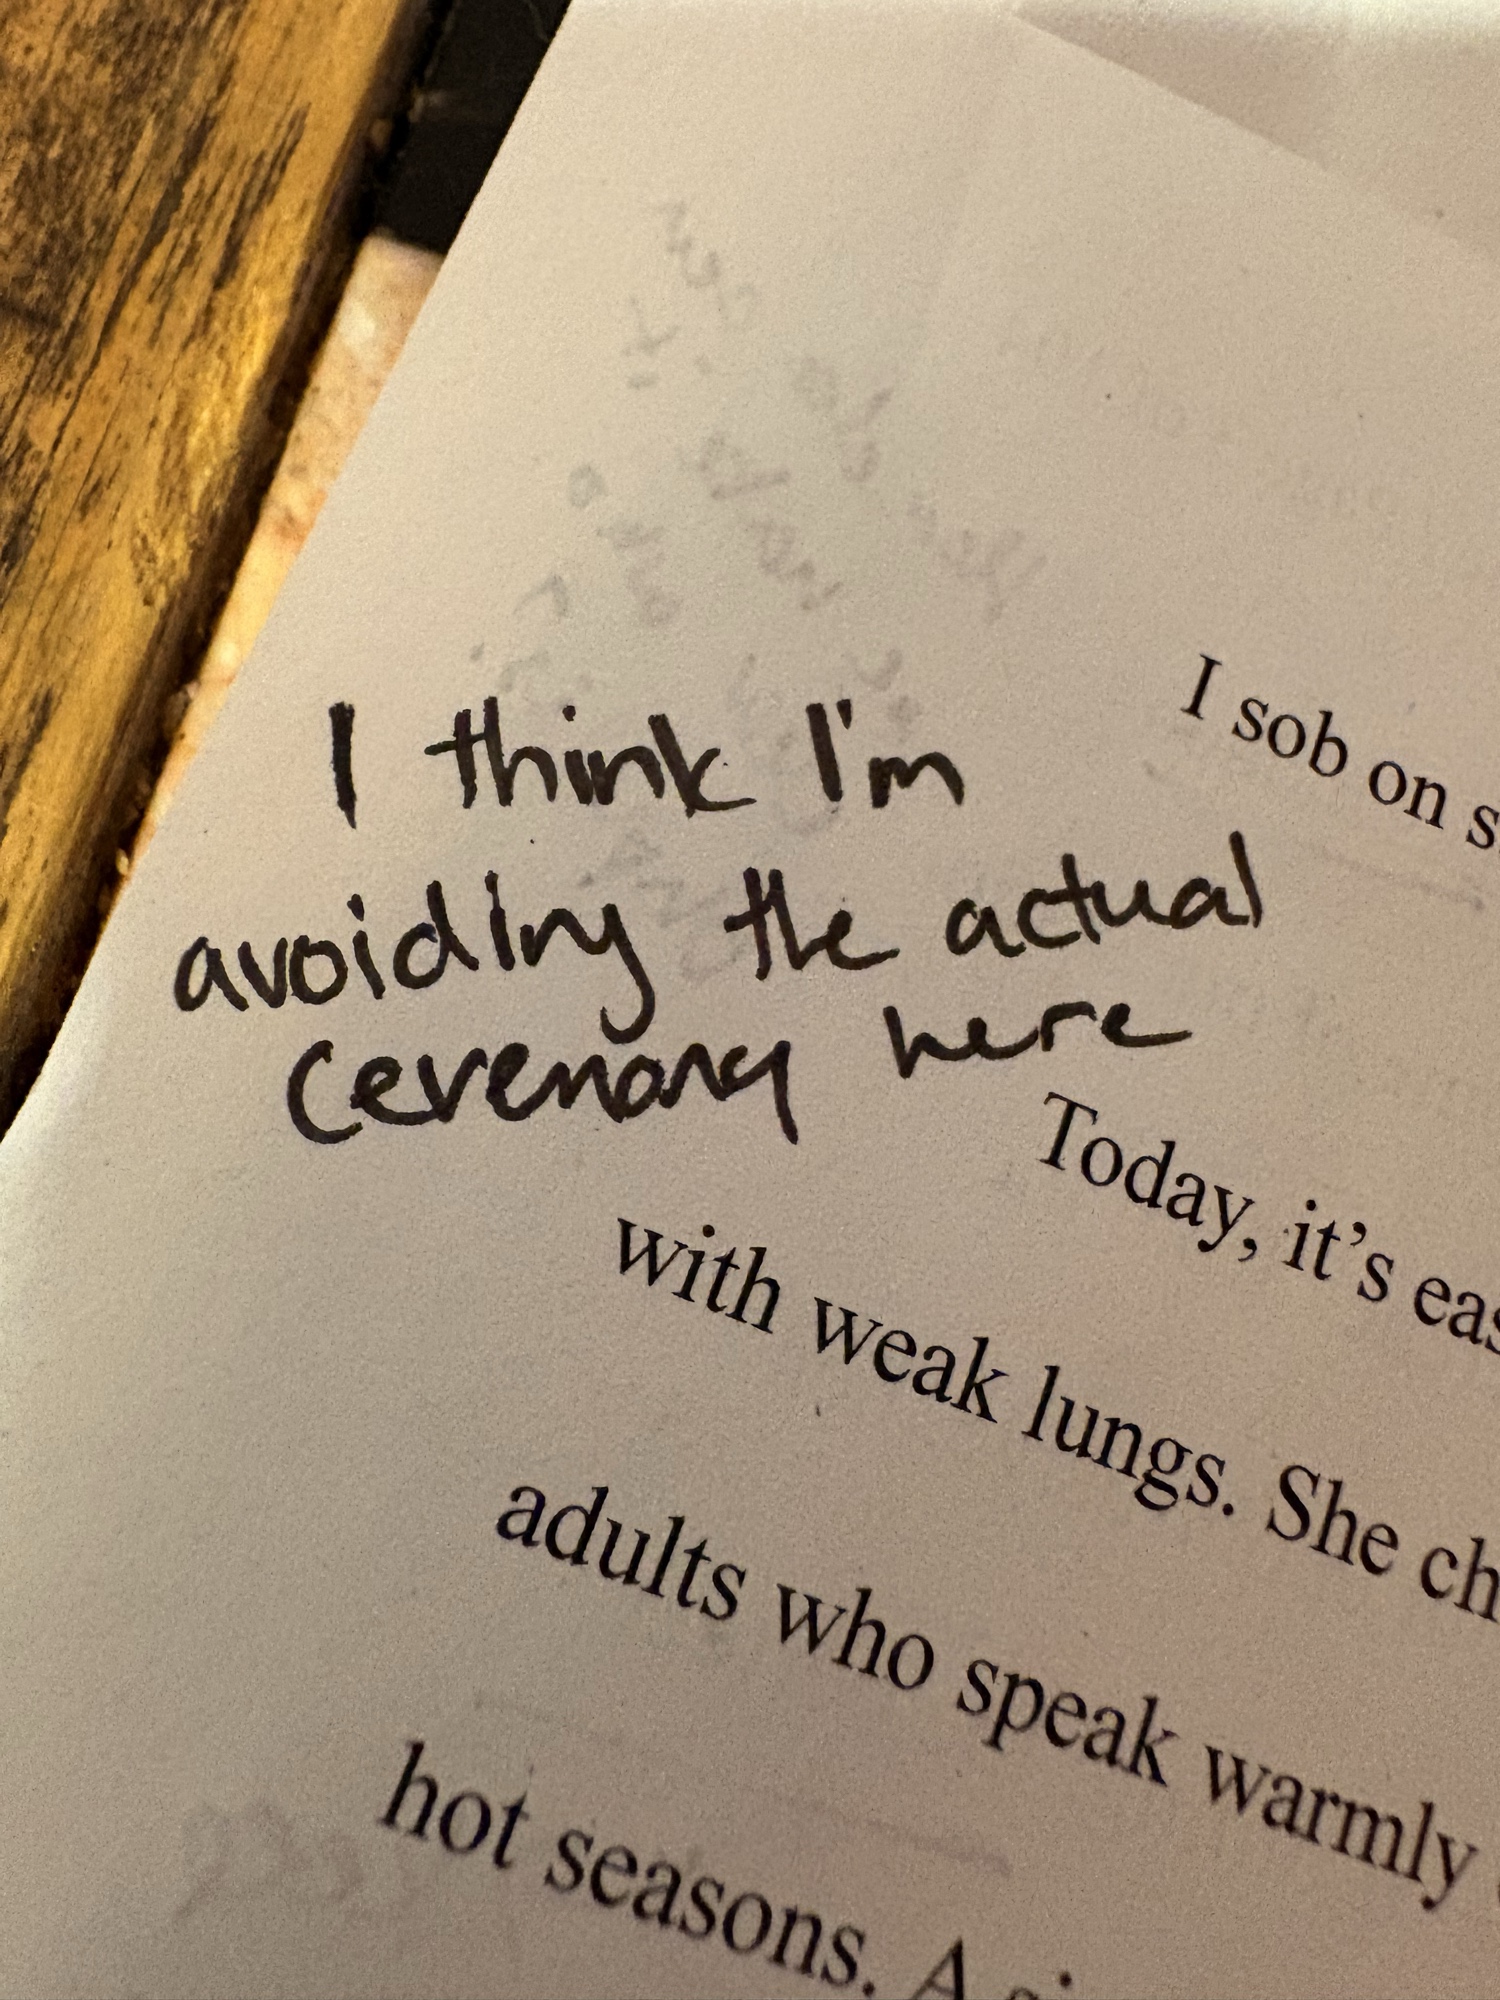 I sob on s
I think I'm
avoiding the actual
ceremony here
Today, it's eas
with weak lungs. She ch
adults who speak warmly
hot seasons. A si